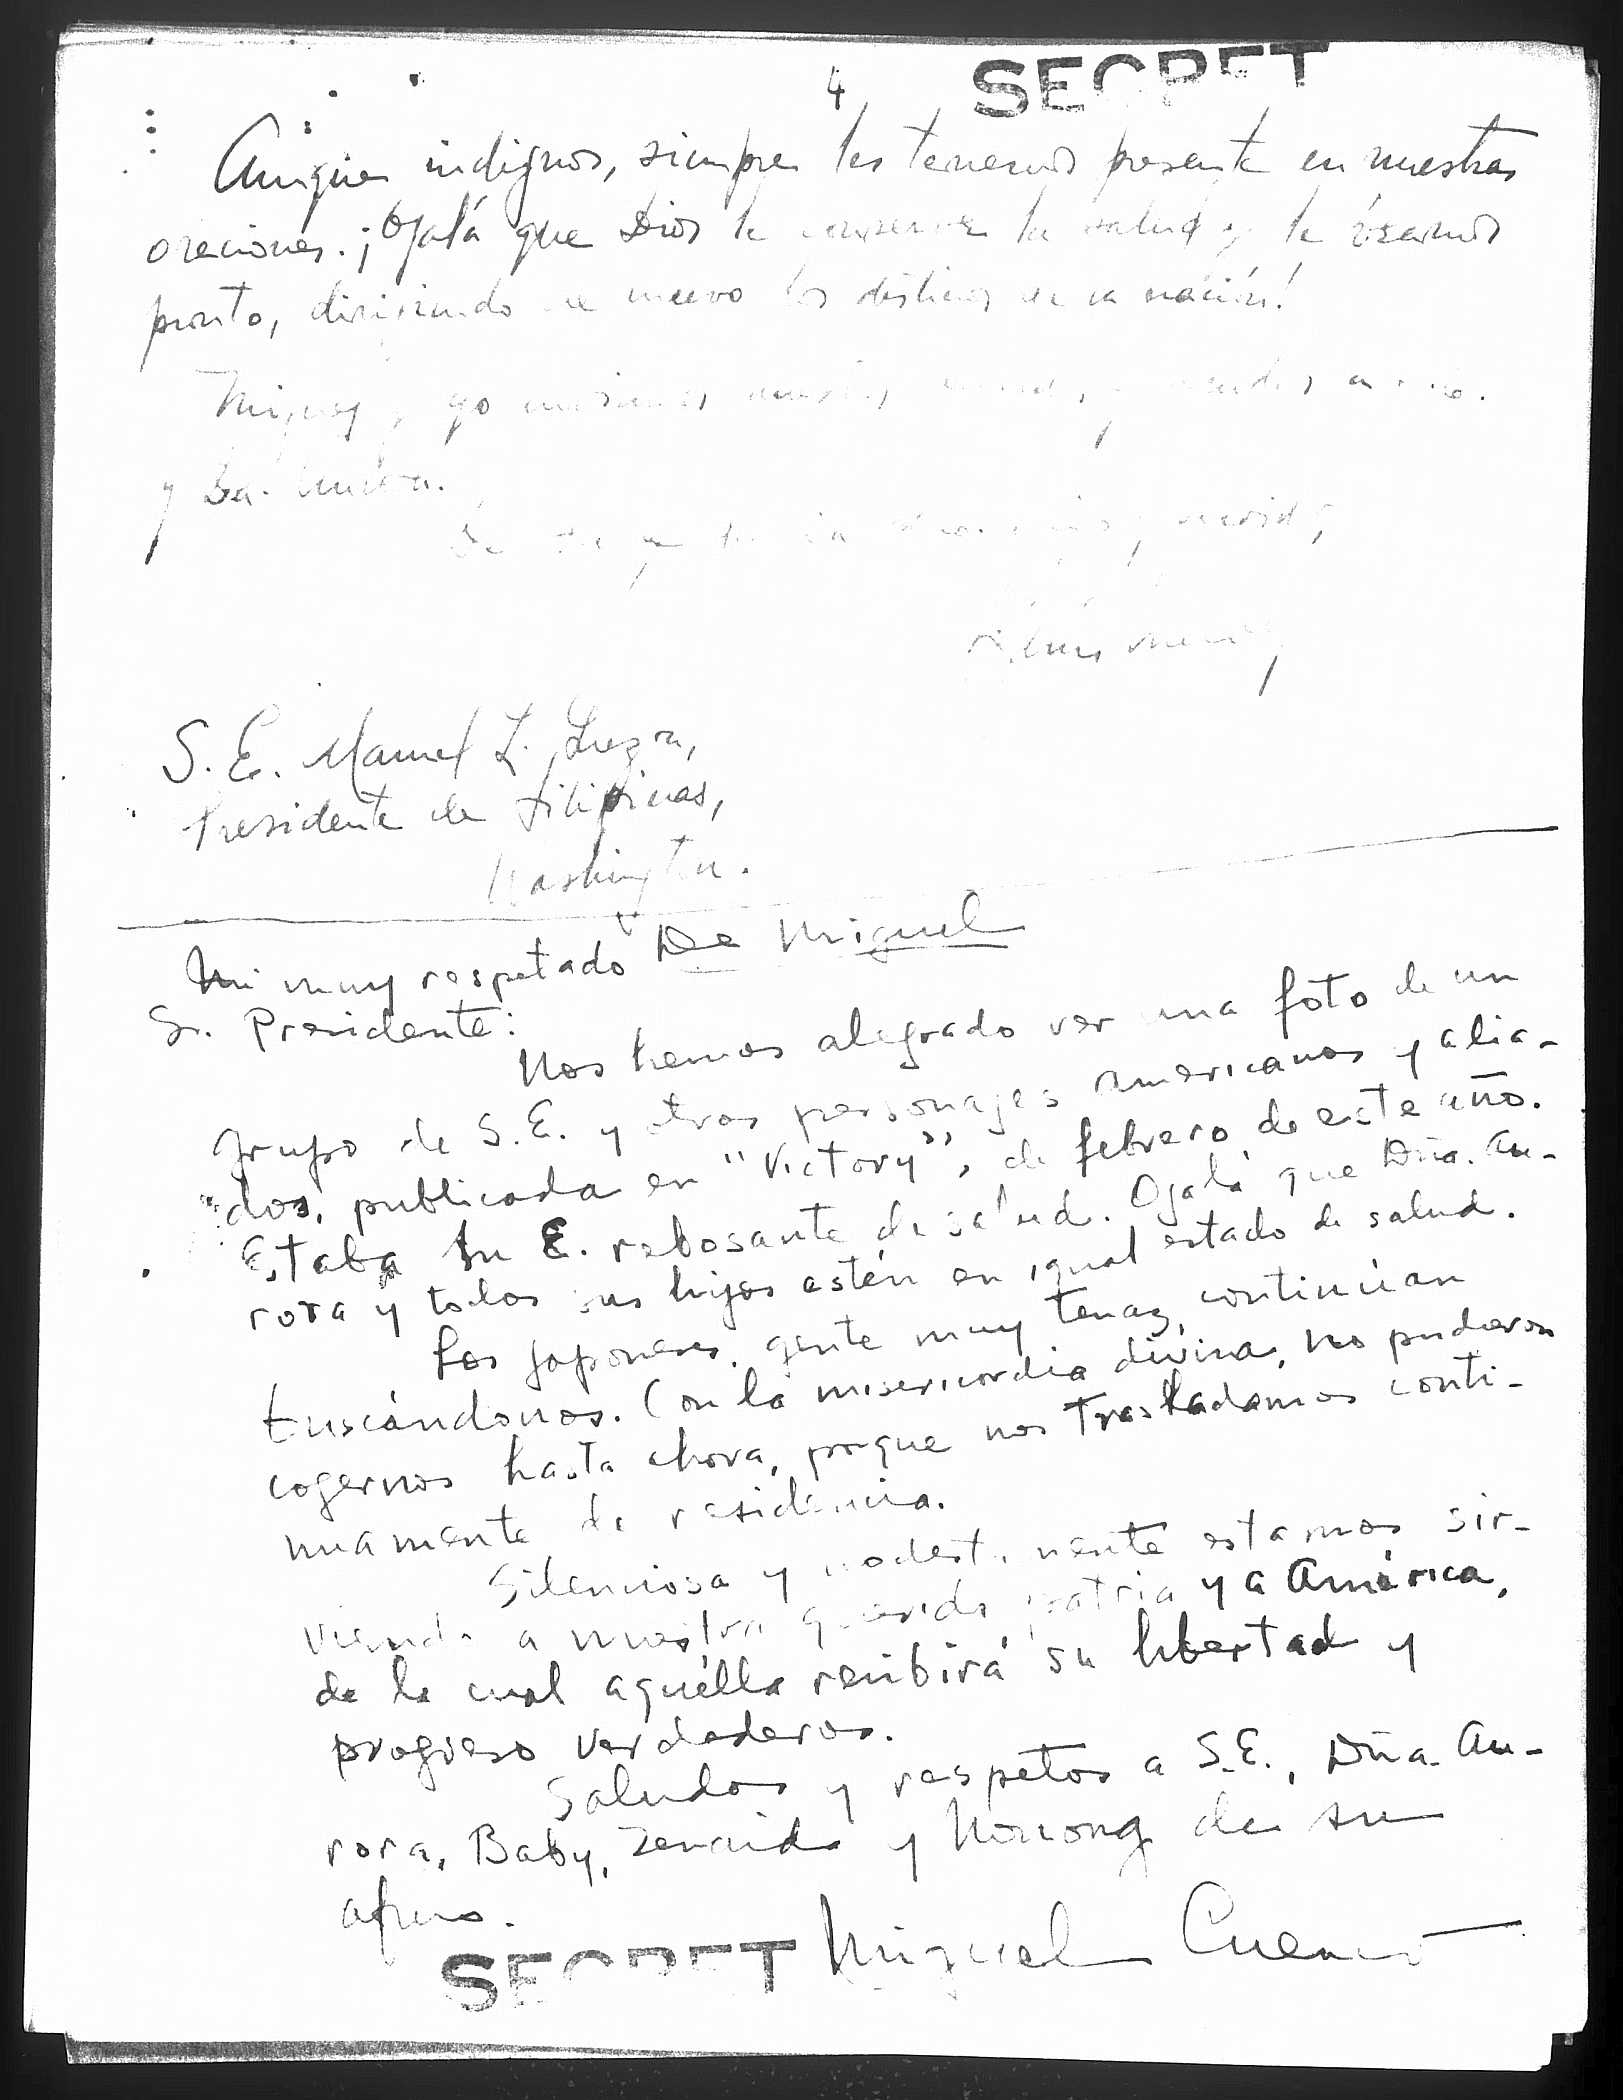 4 SECRET
Aunque indignos, siempre les tenemos presente en nuestras
oraciones. ¡Ojalá que Dios le conserve la salud y le veamos
pronto, dirigiendo de nuevo los destinos de la nación!
Miguel y yo
y Da.

S. E. Manuel L. Quezon,
Presidente de Filipinas,
Washington.
De Miguel
Mi muy respetado
Sr. Presidente:
Nos hemos alegrado ver una foto de un
grupo de S. E. y otros personajes americanos y alia-
dos, publicada en "Victory", de febrero de este año.
Estaba Su E. rebosante de salud. Ojalá que Dña. Au-
rora y todos sus hijos estén en igual estado de salud.
Los japoneses, gente muy tenaz, continúan
buscándonos. Con la misericordia divina, no pudieron
cogernos hasta ahora, porque nos trasladamos conti-
nuamente de residencia.
Silenciosa y modestamente estamos sir-
viendo a nuestra querida patria y a América,
de la cual aquélla recibirá su libertad y
progreso verdaderos.
Saludos y respetos a S.E., Dña. Au-
rora, Baby, Zenaida y Nonong de su
afmo.
Miguel Cuenco
SECRET